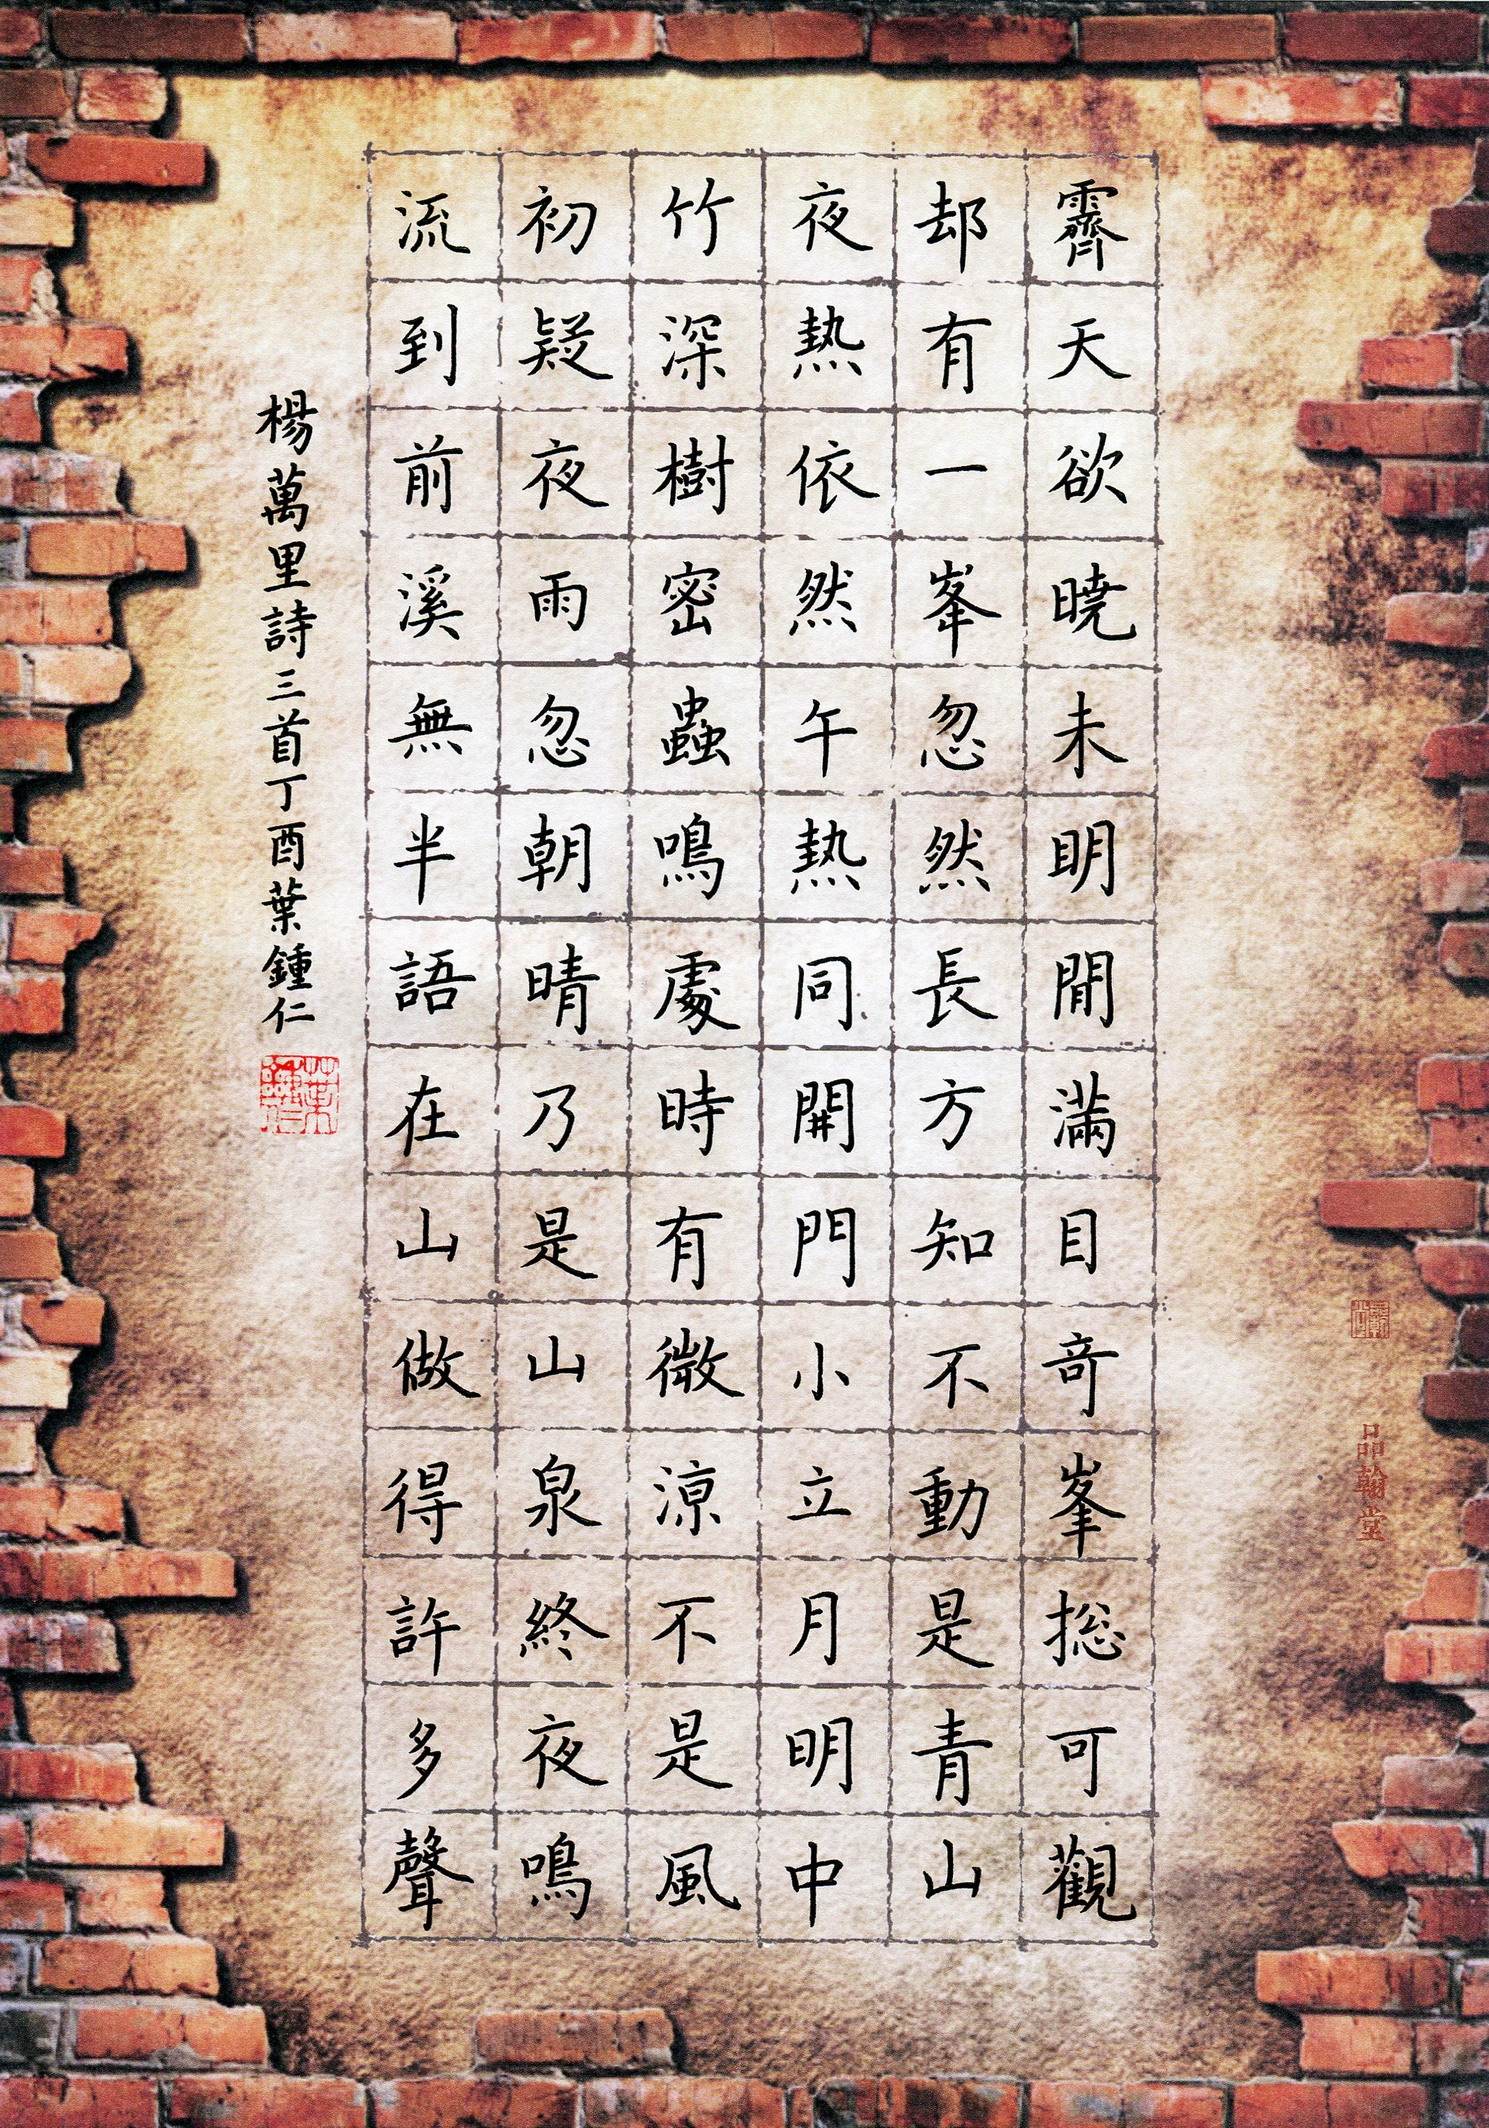 霽天欲曉未明間滿目奇峯捴可觀
却有一峯忽然長方知不動是青山
夜熱依然午熱同開門小立月明中
竹深樹密蟲鳴處時有微涼不是風
初疑夜雨忽朝晴乃是山泉終夜鳴
流到前溪無半語在山做得許多聲
楊萬里詩三首丁酉葉鍾仁
品翰堂